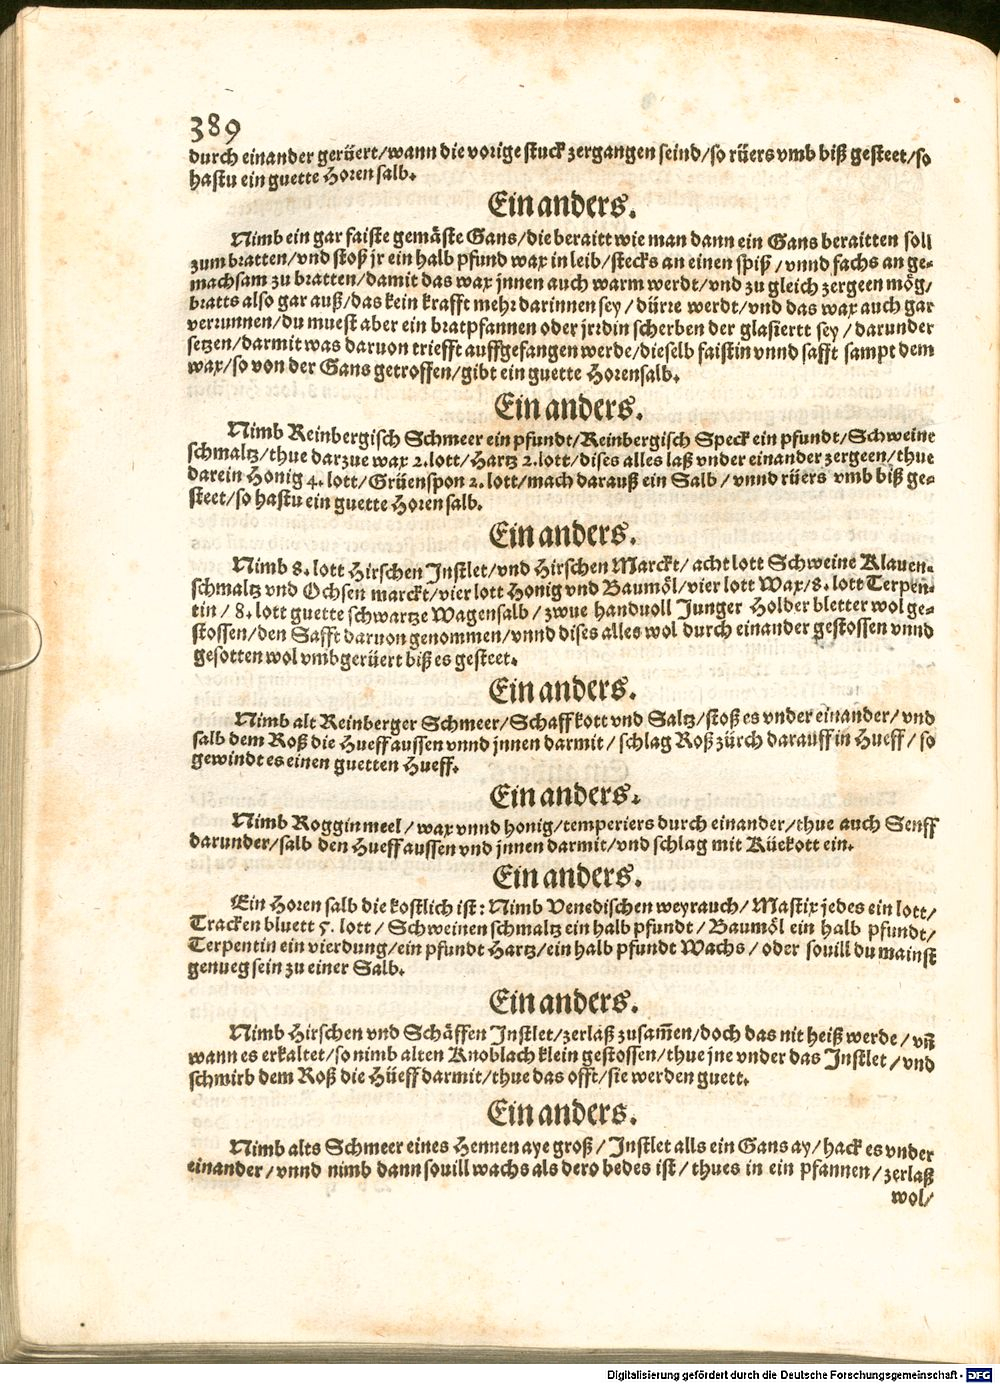 389
durch einander gerüert/wann die vorige stuck zergangen seind/so rüers vmb biß gesteet/so
hastu ein guette Horen salb.
Ein anders.
Nimb ein gar faiste gemäste Gans/die beraitt wie man dann ein Gans beraitten soll
zum bratten/vnd stoß jr ein halb pfund wax in leib/stecks an einen spiß/vnnd fachs an ge-
machsam zu bratten/damit das wax jnnen auch warm werdt/vnd zu gleich zergeen mög/
bratts also gar auß/das kein krafft mehr darinnen sey/dürre werdt/vnd das wax auch gar
verrunnen/du muest aber ein bratpfannen oder jrrdin scherben der glasiertt sey/darunder
setzen/darmit was daruon triefft auffgefangen werde/dieselb faistin vnnd safft sampt dem
wax/so von der Gans getroffen/gibt ein guette Horensalb.
Ein anders.
Nimb Reinbergisch Schmeer ein pfundt/Reinbergisch Speck ein pfundt/Schweine
schmaltz/thue darzue wax 2.lott/Hartz 2.lott/dises alles laß vnder einander zergeen/thue
darein Honig 4.lott/Grüenspon 2.lott/mach darauß ein Salb/vnnd rüers vmb biß ge-
steet/so hastu ein guette Horen salb.
Ein anders.
Nimb 8.lott Hirschen Jnstlet/vnd Hirschen Marckt/acht lott Schweine Klauen-
schmaltz vnd Ochsen marckt/vier lott Honig vnd Baumöl/vier lott Wax/8.lott Terpen-
tin/8.lott guette schwartze Wagensalb/zwue handuoll Junger Holder bletter wol ge-
stossen/den Safft daruon genommen/vnnd dises alles wol durch einander gestossen vnnd
gesotten wol vmbgerüert biß es gesteet.
Ein anders.
Nimb alt Reinberger Schmeer/Schaffkott vnd Saltz/stoß es vnder einander/vnd
salb dem Roß die Hueff aussen vnnd jnnen darmit/schlag Roß zürch darauff in Hueff/so
gewindt es einen guetten Hueff.
Ein anders.
Nimb Rogginmeel/wax vnnd honig/temperiers durch einander/thue auch Senff
darunder/salb den Hueff aussen vnd jnnen darmit/vnd schlag mit Küekott ein.
Ein anders.
Ein Horen salb die kostlich ist: Nimb Venedischen weyrauch/Mastix jedes ein lott/
Tracken bluett 5.lott/Schweinen schmaltz ein halb pfundt/Baumöl ein halb pfundt/
Terpentin ein vierdung/ein pfundt Hartz/ein halb pfundt Wachs/oder souill du mainst
genueg sein zu einer Salb.
Ein anders.
Nimb Hirschen vnd Schäffen Jnstlet/zerlaß zusam̅en/doch das nit heiß werde/vn̅
wann es erkaltet/so nimb alten Knoblach klein gestossen/thue jne vnder das Jnstlet/vnd
schwirb dem Roß die Hüeff darmit/thue das offt/sie werden guett.
Ein anders.
Nimb alts Schmeer eines Hennen aye groß/Jnstlet alls ein Gans ay/hack es vnder
einander/vnnd nimb dann souill wachs als dero bedes ist/thues in ein pfannen/zerlaß
wol/
Digitalisierung gefördert durch die Deutsche Forschungsgemeinschaft - DFG